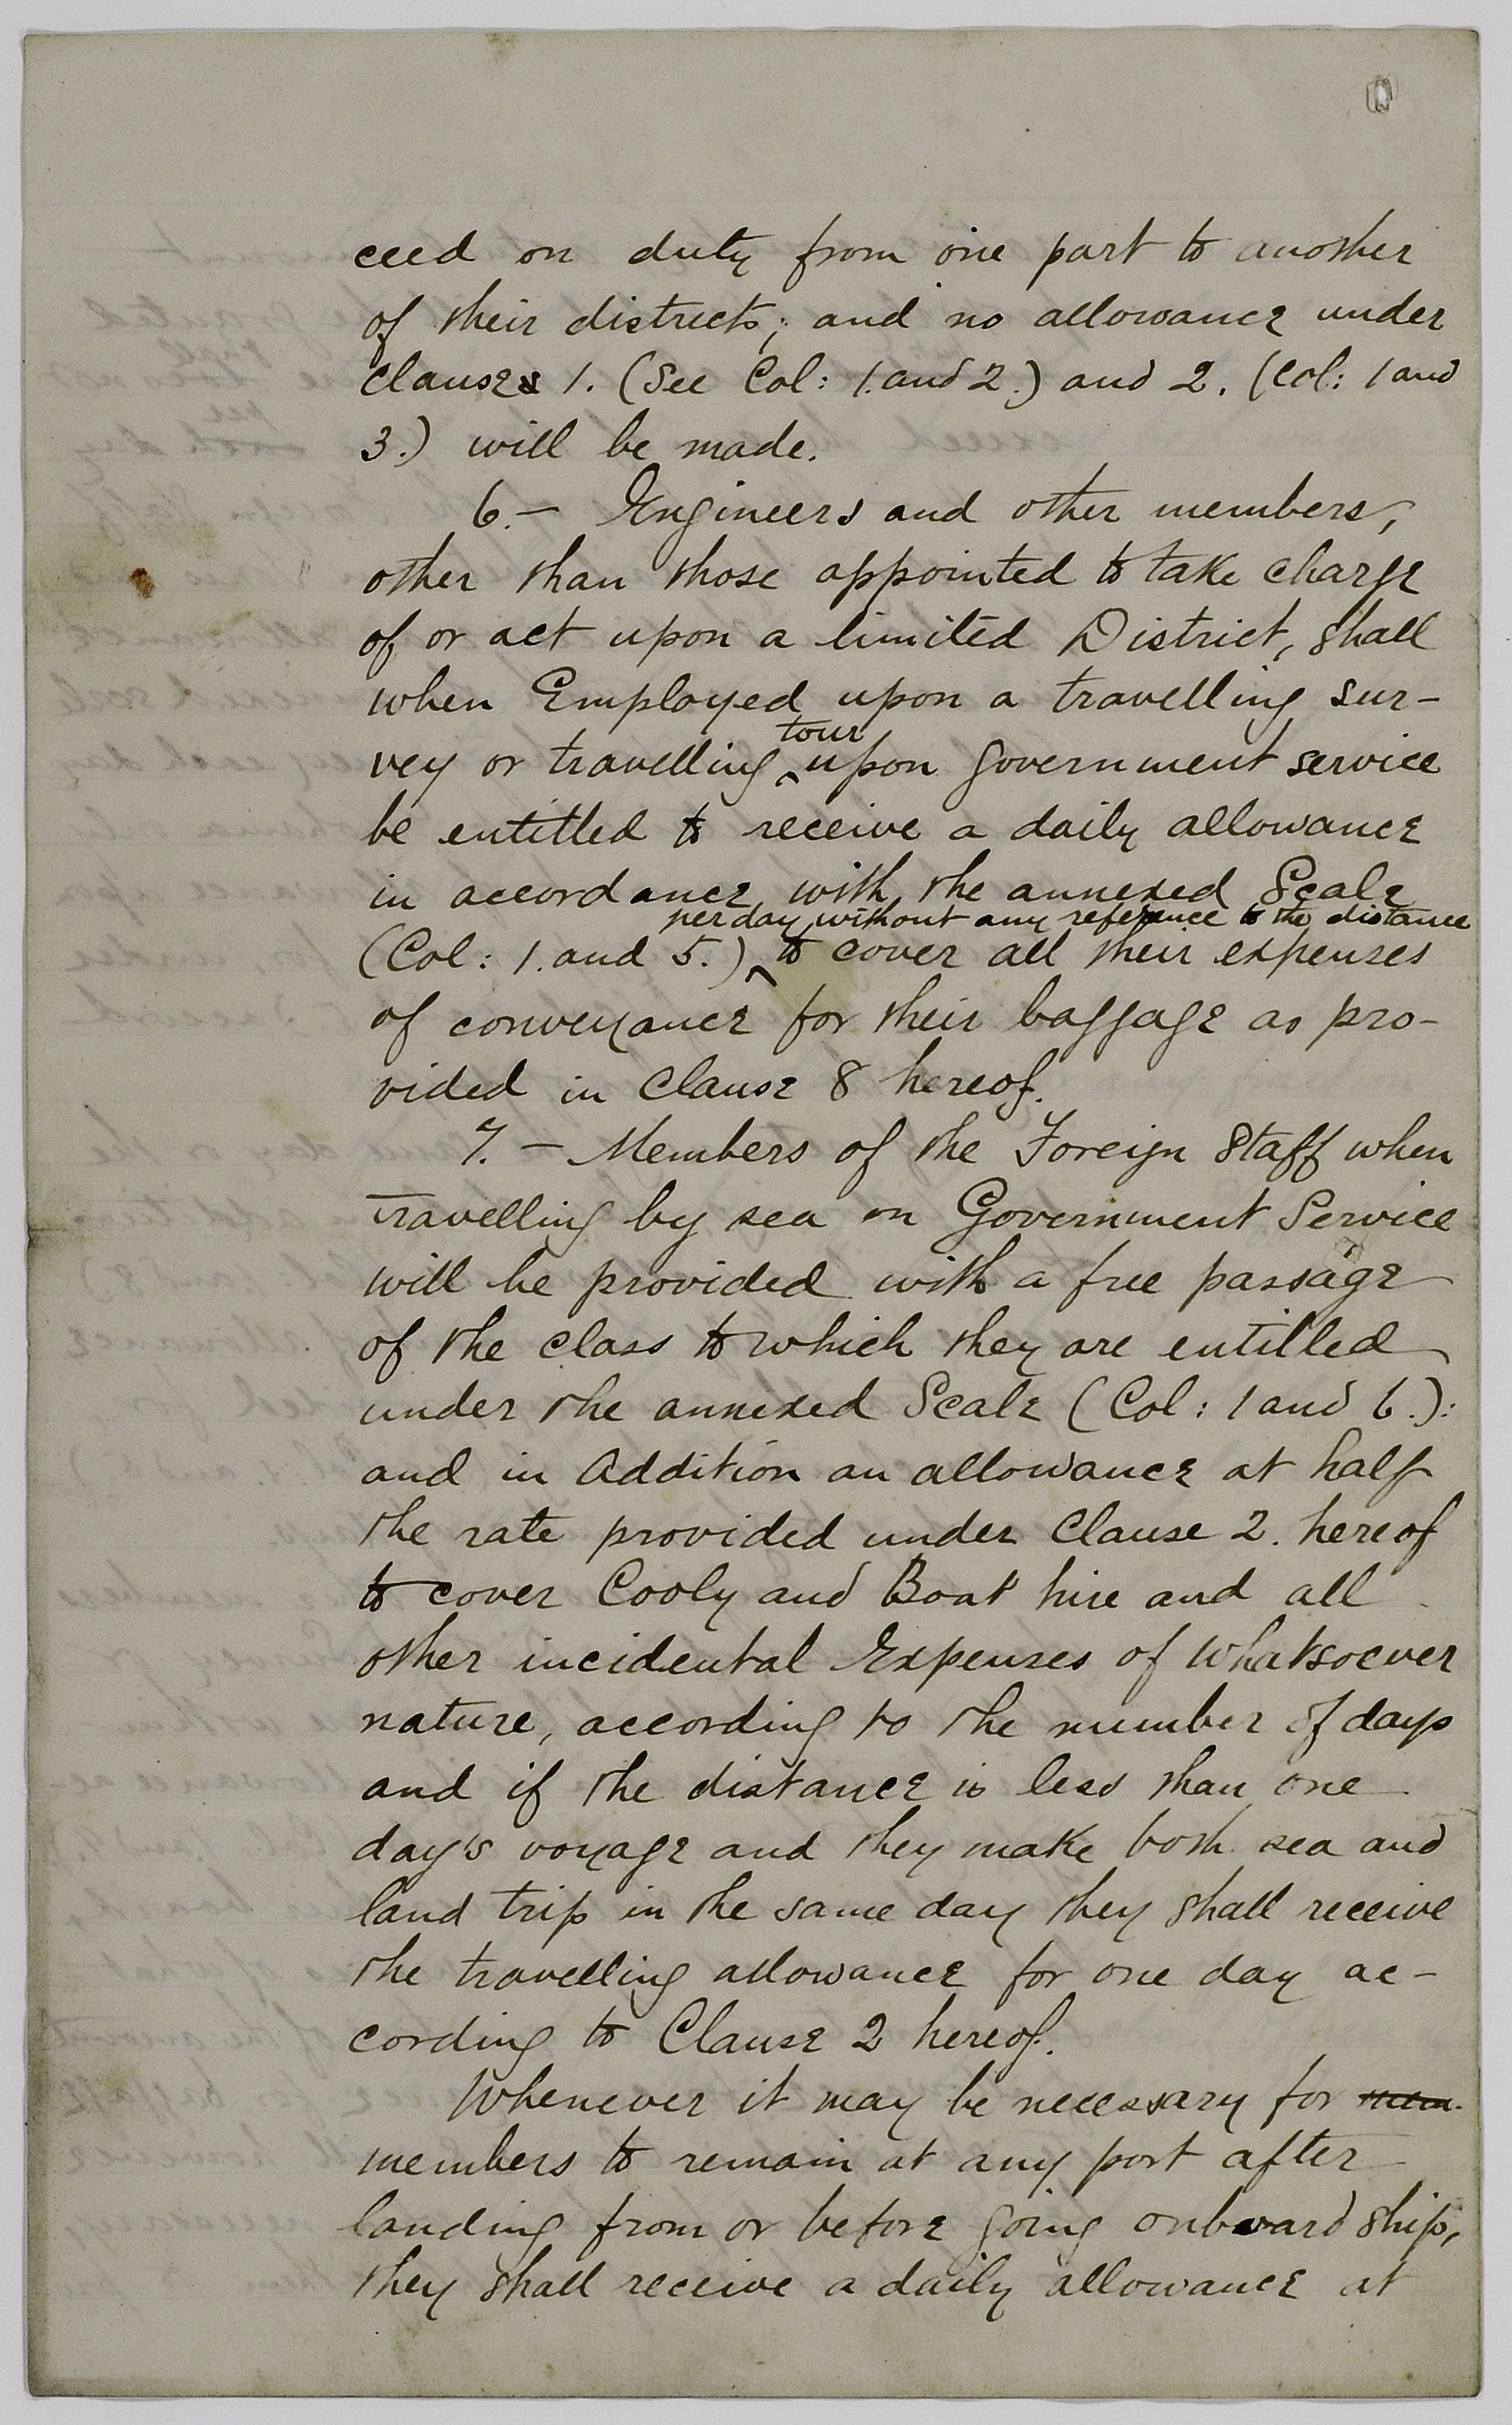 ceed on duty from one part to another
of their districts; and no allowance under
clauses 1. (See Col: 1. and 2.) and 2. (Col: 1 and
3.) will be made.
6.— Engineers and other members,
other than those appointed to take charge
of or act upon a limited District, shall
when Employed upon a travelling sur-
tour
vey or travelling ‸ upon government service
be entitled to receive a daily allowance
in accordance with the annexed Scale
per day without any reference to the distance
(Col: 1. and 5.) ‸ to cover all their expenses
of conveyance for their baggage as pro-
vided in Clause 8 hereof.
7.— Members of the Foreign Staff when
travelling by sea on Government Service
will be provided with a free passage
of the class to which they are entitled
under the annexed Scale (Col: 1 and 6.):
and in Addition an allowance at half
the rate provided under Clause 2. hereof
to cover Cooly and Boat hire and all
other incidental Expenses of whatsoever
nature, according to the number of days
and if the distance is less than one
day's voyage and they make both sea and
land trip in the same day they shall receive
the travelling allowance for one day ac-
cording to Clause 2 hereof.
Whenever it may be necessary for mem-
members to remain at any port after
landing from or before going onboard ship,
they shall receive a daily allowance at